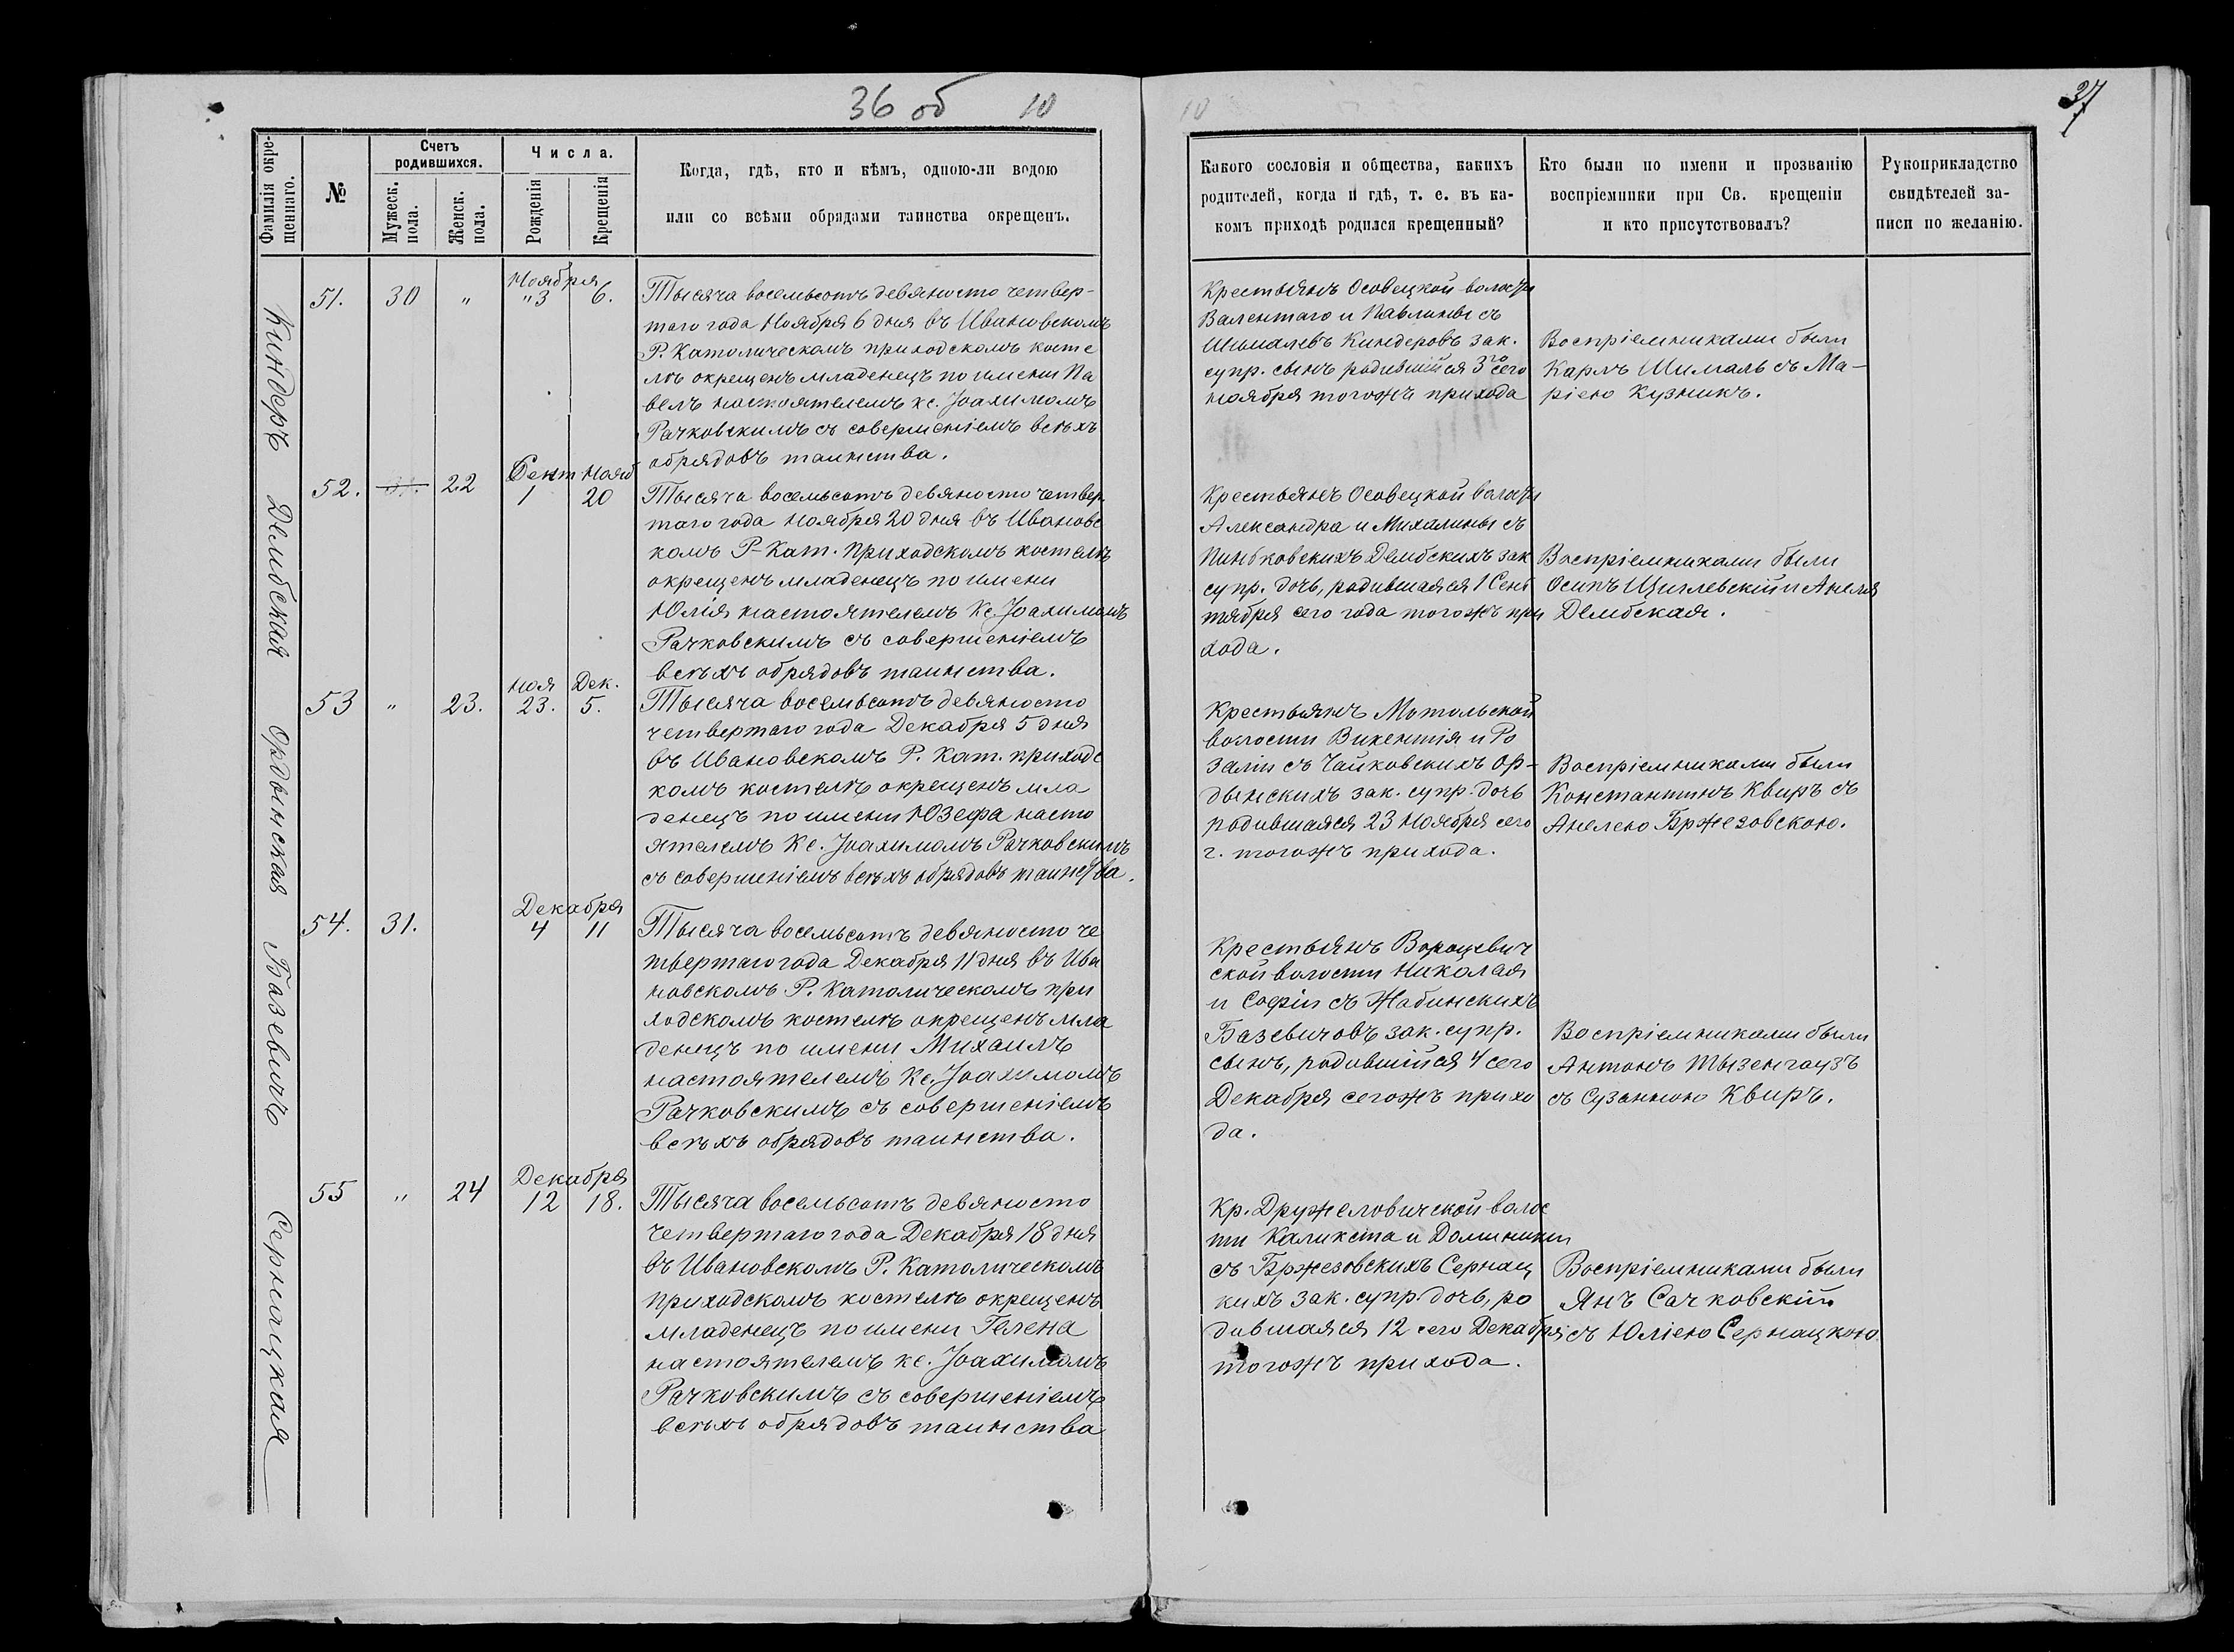 36 об 10
Фамилія окре-
щеннаго.
№
Счетъ
родившихся.
Мужеск.
пола.
Женск.
пола.
Числа.
Рожденія
Крещенія
Когда, гдѣ, кто и кѣмъ, одною-ли водою
или со всѣми обрядами таинства окрещенъ.
Киндеръ
51. 30 " Ноября "3 6.
Тысяча восемьсотъ девяносто четвер-
таго года Ноября 6 дня въ Ивановскомъ
Р. Католическомъ приходскомъ косте
лѣ окрещенъ младенецъ по имени Па
велъ настоятелемъ кс. Іоахимомъ
Рачковскимъ съ совершеніемъ всѣхъ
обрядовъ таинства.
Дембская
52. 31. 22 Сент 1 Нояб 20
Тысяча восемьсотъ девяносто четвер
таго года Ноября 20 дня въ Ивановс
комъ Р-Кат. приходскомъ костелѣ
окрещенъ младенецъ по имени
Юлія настоятелемъ Кс. Іоахимомъ
Рачковскимъ съ совершеніемъ
всѣхъ обрядовъ таинства.
Ордынская
53 " 23. Ноя 23. Дек. 5.
Тысяча восемьсотъ девяносто
четвертаго года Декабря 5 дня
въ Ивановскомъ Р. Кат. приходс
комъ костелѣ окрещенъ мла
денецъ по имени Юзефа насто
ятелемъ Кс. Іоахимомъ Рачковскимъ
съ совершеніемъ всѣхъ обрядовъ таинства.
Базевичъ
54. 31. Декабря 4 11
Тысяча восемьсотъ девяносто че
твертаго года Декабря 11 дня въ Ива
новскомъ Р. Католическомъ при
ходскомъ костелѣ окрещенъ мла
денецъ по имени Михаилъ
настоятелемъ Кс. Іоахимомъ
Рачковскимъ съ совершеніемъ
всѣхъ обрядовъ таинства.
Сернацкая
55 " 24 Декабря 12 18.
Тысяча восемьсотъ девяносто
четвертаго года Декабря 18 дня
въ Ивановскомъ Р. Католическомъ
приходскомъ костелѣ окрещенъ
младенецъ по имени Гелена
настоятелемъ кс. Іоахимомъ
Рачковскимъ съ совершеніемъ
всѣхъ обрядовъ таинства
10
37
Какого сословія и общества, какихъ
родителей, когда и гдѣ, т. е. въ ка-
комъ приходѣ родился крещенный?
Кто были по имени и прозванію
воспріемники при Св. крещеніи
и кто присутствовалъ?
Рукоприкладство
свидѣтелей за-
писи по желанію.
Крестьянъ Осовецкой волости
Валентаго и Павлины съ
Шималевъ Киндеровъ зак.
супр. сынъ родившійся 3го сего
ноября тогожъ прихода
Воспріемниками были
Карлъ Шималь съ Ма-
ріею Кузникъ.
Крестьянъ Осовецкой валости
Александра и Михалины съ
Пиньковскихъ Дембскихъ зак
супр. дочь, родившаяся 1 Сент
тября сего года тогожъ при
хода.
Воспріемниками были
Осипъ Щиглевскій и Анеля
Дембская.
Крестьянъ Мотольской
волости Викентія и Ро
заліи съ Чайковскихъ Ор-
дынскихъ зак. супр. дочь
родившаяся 23 Ноября сего
г. тогожъ прихода.
Воспріемниками были
Константинъ Квиръ съ
Анелею Бржезовскою.
Крестьянъ Вороцевич
ской волости Николая
и Софіи съ Жабинскихъ
Базевичовъ зак. супр.
сынъ, родившійся 4 сего
Декабря сегожъ прихо
да.
Воспріемниками были
Антонъ Тызенгаузъ
съ Сузанною Квиръ.
Кр. Дружеловичской волос
ти Каликста и Доминики
съ Бржезовскихъ Сернац
кихъ зак. супр. дочь, ро
дившаяся 12 сего Декабря
тогожъ прихода.
Воспріемниками были
Янъ Сачковскій
съ Юліею Сернацкою